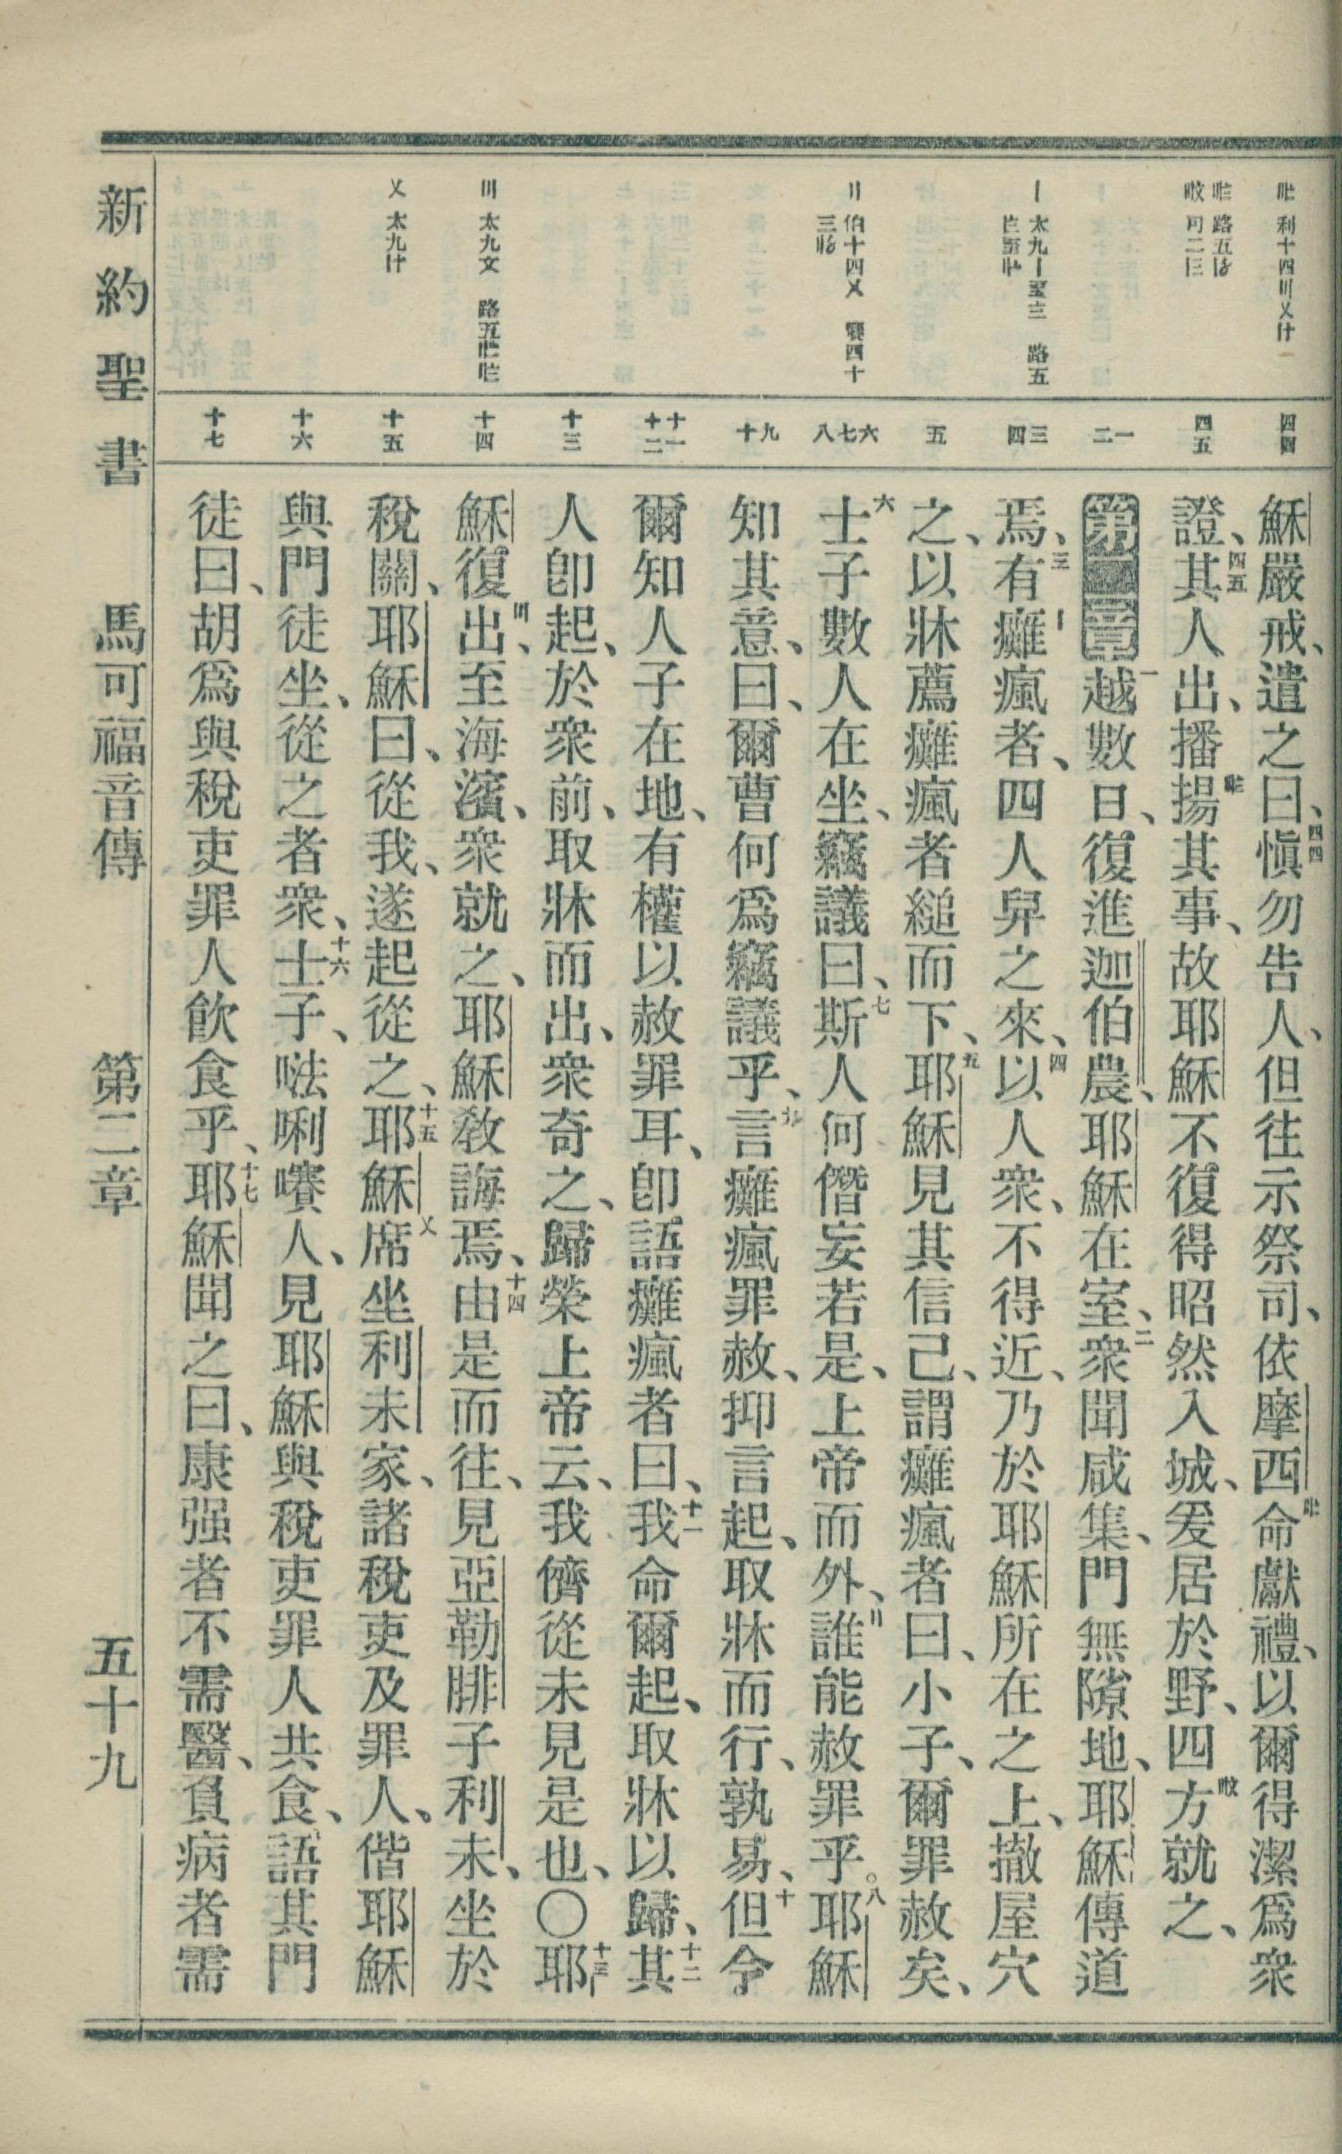 穌嚴戒、遣之曰、四四愼勿告人、但往示祭司、依摩西命獻禮、以爾得潔爲衆
證、四五其人出、播揚其事、故耶穌不復得昭然入城、爰居於野、四方就之、
第二章一越數日、復進迦伯農、耶穌在室、二衆聞咸集、門無隙地、耶穌傳道
焉、三有癱瘋者、四人舁之來、四以人衆、不得近、乃於耶穌所在之上、撤屋穴
之、以牀薦癱瘋者縋而下、五耶穌見其信己、謂癱瘋者曰、小子、爾罪赦矣、
六士子數人在坐、竊議曰、七斯人何僭妄若是、上帝而外、誰能赦罪乎。八耶穌
知其意、曰、爾曹何爲竊議乎、九言癱瘋罪赦、抑言起、取牀而行、孰易、十但令
爾知人子在地、有權以赦罪耳、卽語癱瘋者曰、十一我命爾起、取牀以歸、十二其
人卽起、於衆前、取牀而出、衆奇之、歸榮上帝云、我儕從未見是也、〇十三耶
穌復出、至海濱、衆就之、耶穌敎誨焉、十四由是而往、見亞勒腓子利未、坐於
稅關、耶穌曰、從我、遂起從之、十五耶穌席坐利未家、諸稅吏及罪人、偕耶穌
與門徒坐、從之者衆、十六士子、𠵽唎㘔人、見耶穌與稅吏罪人共食、語其門
徒曰、胡爲與稅吏罪人飮食乎、十七耶穌聞之曰、康强者不需醫、負病者需
四四
四五
一二
三四
五
六七八
九十
十一十二
十三
十四
十五
十六
十七
利十四
路五
可二
太九 路五
伯十四 賽四十
太九 路五
太九
新約聖書 馬可福音傳 第二章 五十九